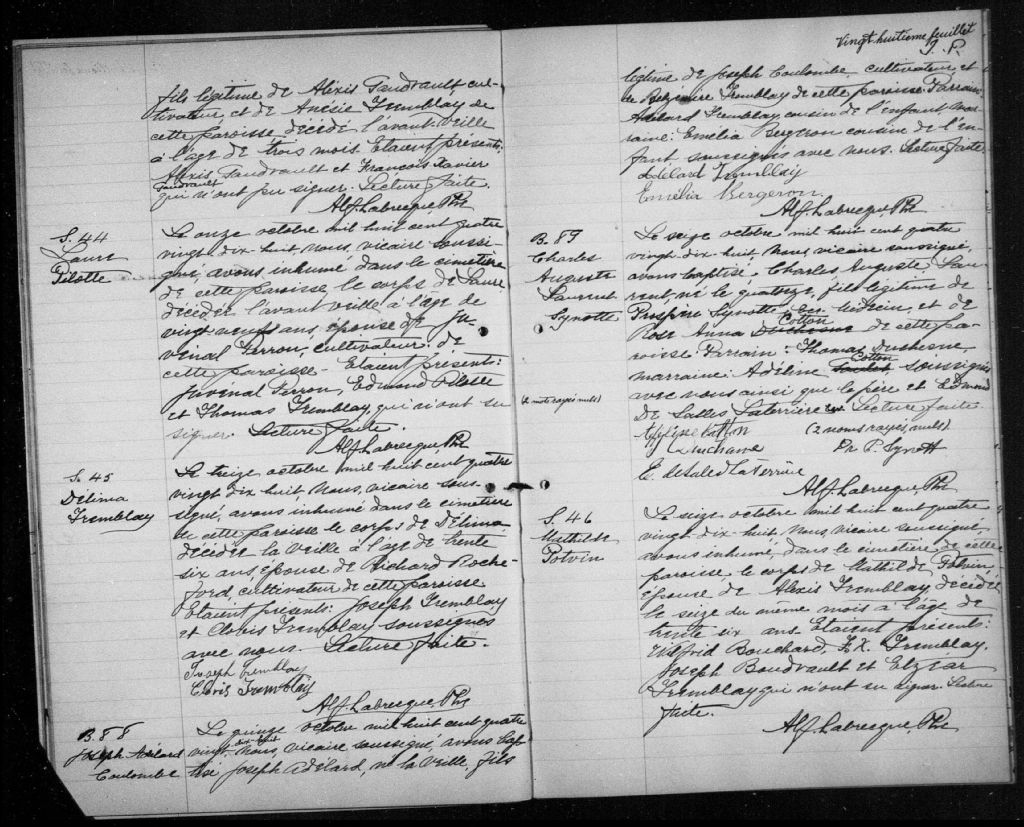 fils légitime de Alexis Gaudrault cul-
tivateur, et de Anésie Tremblay de
cette paroisse décédé l'avant-veille
à l'age de trois mois. Etaient présents:
Alexis Gaudrault et François Xavier
Gaudrault
qui n'ont pu signer. Lecture faite.
Alf. Labrecque, Ptr
S. 44
Laure
Pilotte
Le onze octobre mil huit cent quatre
vingt dix huit, nous, vicaire soussi-
gné, avons inhumé dans le cimetière
de cette paroisse le corps de Laure
décédée l'avant veille à l'age de
vingt neuf ans, épouse de Ju-
vénal Perron, cultivateur, de
cette paroisse - Etaient présents:
Juvénal Perron, Edmond Pilotte
et Thomas Tremblay, qui n'ont su
signer. Lecture faite.
Alf. Labrecque, Ptr
S. 45
Délima
Tremblay
Le treize octobre mil huit cent quatre
vingt dix huit, nous, vicaire sous-
signé, avons inhumé dans le cimetière
de cette paroisse le corps de Délima
décédée la veille à l'age de trente
six ans, épouse de Richard Roche-
ford, cultivateur de cette paroisse
Etaient présents: Joseph Tremblay
et Clovis Tremblay soussignés
avec nous. Lecture faite.
Joseph Tremblay
Clovis Tremblay
Alf. Labrecque, Ptr
B. 88
Joseph Adélard
Coulombe
Le quinze octobre mil huit cent quatre
dix-huit
vingt nous, vicaire soussigné, avons bap-
tisé Joseph Adélard, né la veille, fils
Vingt-huitième feuillet
légitime de Joseph Coulombe, cultivateur, et
de Belzémire Tremblay de cette paroisse. Parrain
Adélard Tremblay, cousin de l'enfant, mar-
raine: Emélia Bergeron cousine de l'en-
fant soussignés avec nous. Lecture faite.
Adélard Tremblay
Emélia Bergeron.
Alf. Labrecque, Ptr
B. 89
Charles
Auguste
Laurent
Synotte
Le seize octobre mil huit cent quatre
vingt dix-huit, nous, vicaire soussigné,
avons baptisé Charles Auguste Lau-
rent, né le quatorze, fils légitime de
Prospère Synotte médecin, et de
Cotton
Rose Anna Duchesne de cette pa-
roisse. Parrain: Thomas Duchesne,
Cotton
marraine: Adéline soussignés
avec nous ainsi que le père et Edmond
De Salles Laterrière Lecture faite.
(2 mots rayés nuls)
Adéline Cotton (2 noms rayés, nuls)
Duchesne Dr P. Synott
E. de Sales LaTerrière
Alf. Labrecque, Ptr
S. 46
Mathilde
Potvin
Le seize octobre mil huit cent quatre
vingt dix-huit, nous, vicaire soussigné,
avons inhumé, dans le cimetière de cette
paroisse, le corps de Mathilde Potvin,
épouse de Alexis Tremblay, décédée
le seize du même mois à l'âge de
trente six ans. Etaient présents:
Wilfrid Bouchard, F. X. Tremblay,
Joseph Boudrault et Elzéar
Tremblay qui n'ont su signer. Lecture
faite.
Alf. Labrecque, Ptr